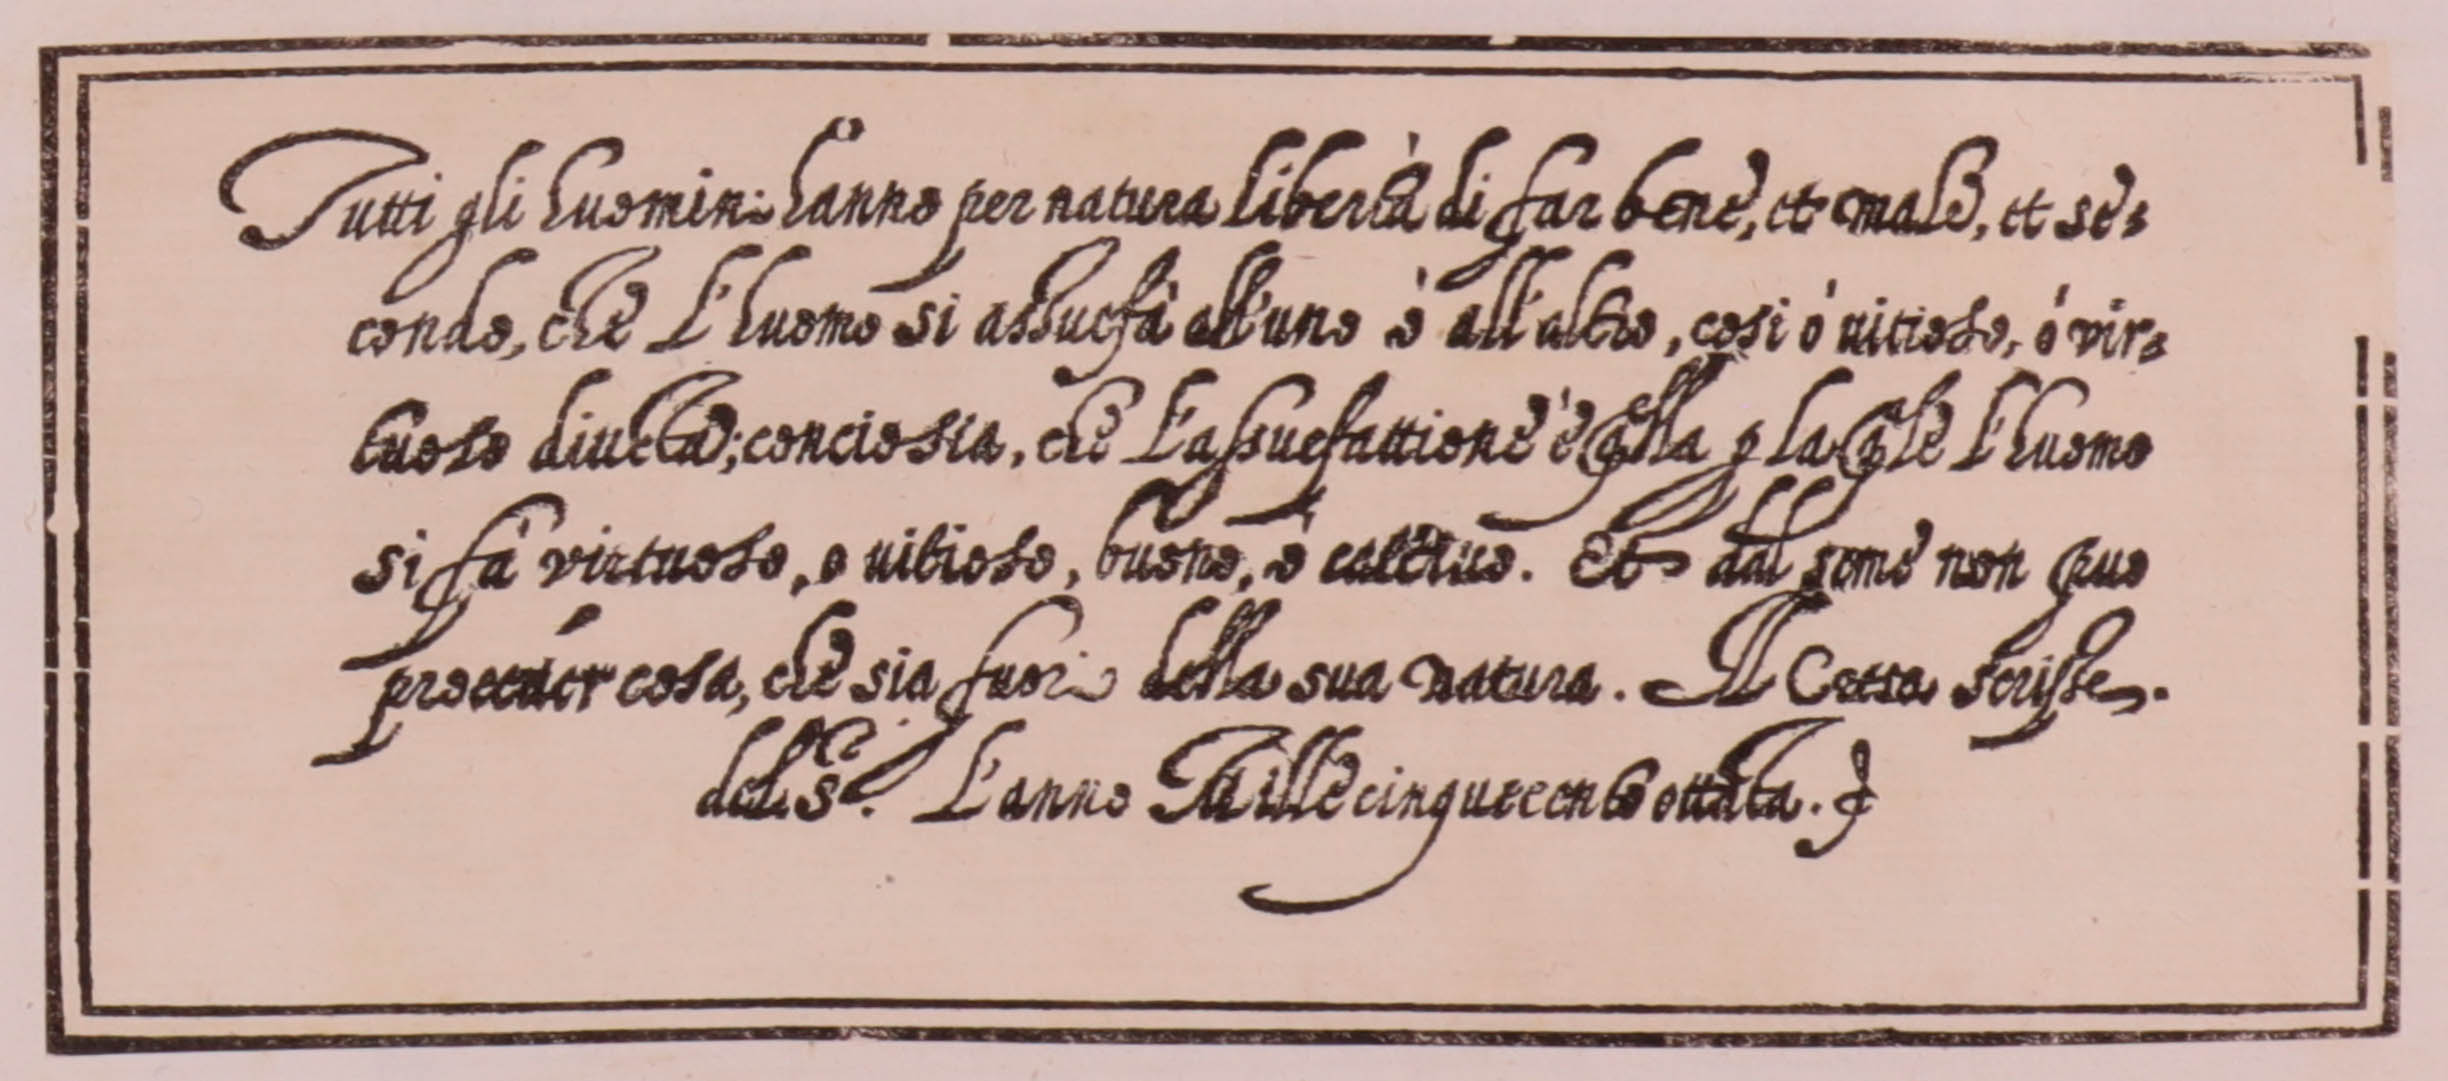 Tutti gli huomini hanno per natura libertà di far bene, et male, et se-
condo, che l'huomo si assuefà all'uno ò all'altro, cosi ò uitioso, ò vir-
tuoso diuēta; conciosia, che l'assuefattione è qlla p la qle l'huomo
si fà virtuoso, o uitioso, buono, ò cattiuo. Et dal seme non puo
proceder cosa, che sia fuori della sua natura. Il scrisse.
del. L'anno Mille cinquecento ottāta.